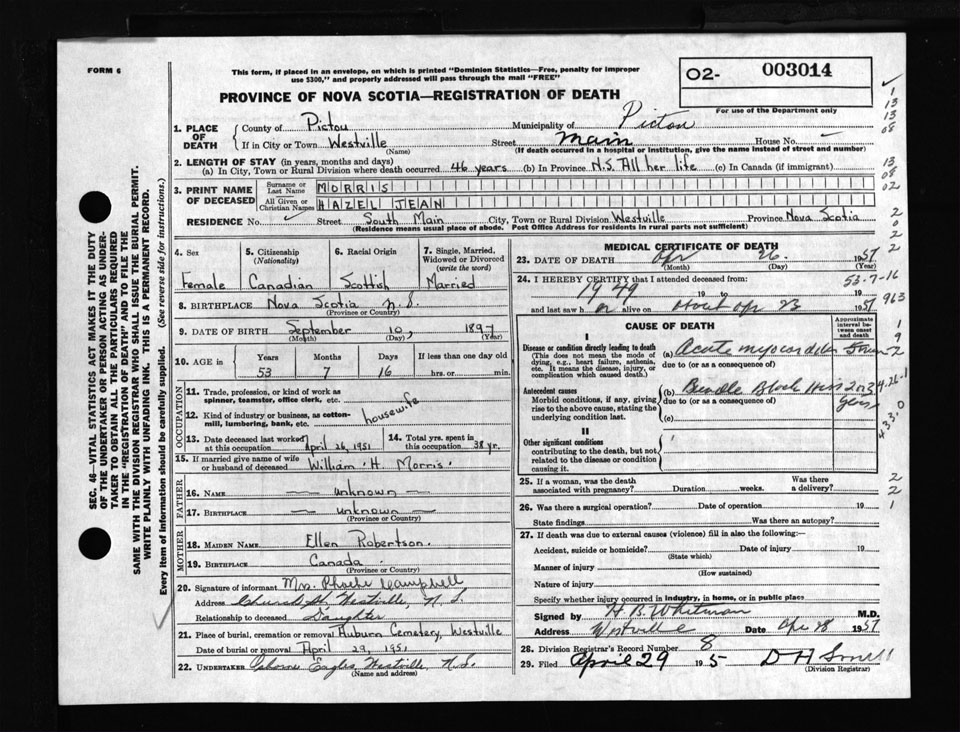 FORM 6
This form, if placed in an envelope, on which is printed "Dominion Statistics—Free, penalty for improper
use $300," and properly addressed will pass through the mail "FREE"
PROVINCE OF NOVA SCOTIA—REGISTRATION OF DEATH
O2- 003014
For use of the Department only
1. PLACE OF DEATH
County of Pictou Municipality of Pictou
If in City or Town Westville Street Main House No.
(Name) (If death occurred in a hospital or institution, give the name instead of street and number)
2. LENGTH OF STAY (in years, months and days)
(a) In City, Town or Rural Division where death occurred 46 years (b) In Province N.S. All her life (c) In Canada (if immigrant)
3. PRINT NAME OF DECEASED
Surname or Last Name MORRIS
All Given or Christian Names HAZEL JEAN
RESIDENCE No. Street South Main City, Town or Rural Division Westville Province Nova Scotia
(Residence means usual place of abode. Post Office Address for residents in rural parts not sufficient)
4. Sex Female
5. Citizenship (Nationality) Canadian
6. Racial Origin Scottish
7. Single, Married, Widowed or Divorced (write the word) Married
8. BIRTHPLACE Nova Scotia N.S.
(Province or Country)
9. DATE OF BIRTH September 10, 1897
(Month) (Day) (Year)
10. AGE in Years Months Days If less than one day old
53 7 16 hrs. or min.
OCCUPATION
11. Trade, profession, or kind of work as spinner, teamster, office clerk, etc.
12. Kind of industry or business, as cotton-mill, lumbering, bank, etc.
housewife
13. Date deceased last worked at this occupation April 26, 1951
14. Total yrs. spent in this occupation 38 yr.
15. If married give name of wife or husband of deceased William H. Morris
FATHER
16. NAME — unknown —
17. BIRTHPLACE — unknown —
(Province or Country)
MOTHER
18. MAIDEN NAME Ellen Robertson.
19. BIRTHPLACE Canada
(Province or Country)
20. Signature of informant Mrs. Phoebe Campbell
Address Church St. Westville, N.S.
Relationship to deceased Daughter
21. Place of burial, cremation or removal Auburn Cemetery, Westville
Date of burial or removal April 29, 1951
22. UNDERTAKER Osborne Eagles, Westville, N.S.
(Name and address)
MEDICAL CERTIFICATE OF DEATH
23. DATE OF DEATH Apr 26. 1951
(Month) (Day) (Year)
24. I HEREBY CERTIFY that I attended deceased from:
1949 19 to 19
and last saw her alive on About Apr 23 1951
CAUSE OF DEATH
Approximate interval between onset and death
I
Disease or condition directly leading to death
(This does not mean the mode of dying, e.g., heart failure, asthenia, etc. It means the disease, injury, or complication which caused death.)
(a) Acute myocardial
due to (or as a consequence of)
Antecedent causes
Morbid conditions, if any, giving rise to the above cause, stating the underlying condition last.
(b) Bundle Block 2 or 3 years
due to (or as a consequence of)
(c)
II
Other significant conditions
contributing to the death, but not related to the disease or condition causing it.
25. If a woman, was the death associated with pregnancy? Duration weeks. Was there a delivery?
26. Was there a surgical operation? Date of operation 19
State findings Was there an autopsy?
27. If death was due to external causes (violence) fill in also the following:—
Accident, suicide or homicide? Date of injury 19
(State which)
Manner of injury
(How sustained)
Nature of injury
Specify whether injury occurred in industry, in home, or in public place
Signed by H.B. Whitman M.D.
Address Westville Date Apr 28 1951
28. Division Registrar's Record Number 8
29. Filed April 29 195
(Division Registrar)
SEC. 46—VITAL STATISTICS ACT MAKES IT THE DUTY
OF THE UNDERTAKER OR PERSON ACTING AS UNDER-
TAKER TO OBTAIN ALL THE PARTICULARS REQUIRED
IN THE "REGISTRATION OF DEATH" AND TO FILE THE
SAME WITH THE DIVISION REGISTRAR WHO SHALL ISSUE THE BURIAL PERMIT.
WRITE PLAINLY WITH UNFADING INK. THIS IS A PERMANENT RECORD.
Every item of information should be carefully supplied. (See reverse side for instructions.)
1
13
13
08
13
08
02
2
0
2
2
53-7-16
963
1
9
2
4-26-1
0
433
2
2
1